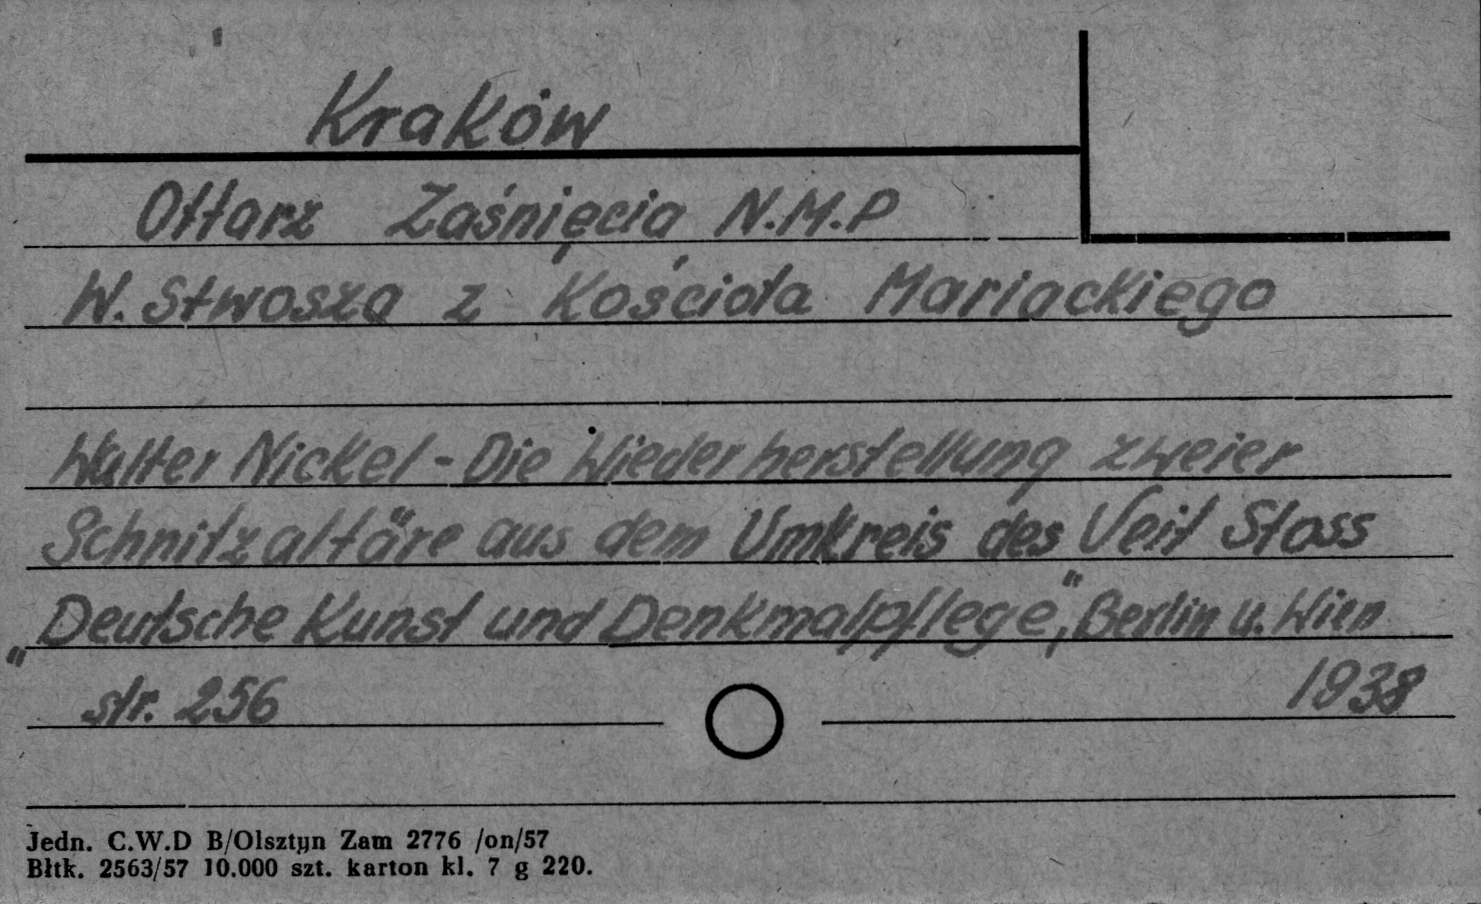 Kraków
Ołtarz Zaśnięcia N.M.P
W. Stwosza z Kościoła Mariackiego
Walter Nickel - Die Wiederherstellung zweier
Schnitzaltäre aus dem Umkreis des Veit Stoss
"Deutsche Kunst und Denkmalpflege", Berlin u. Wien
1938
str. 256
Jedn. C.W.D B/Olsztyn Zam 2776 /on/57
Błtk. 2563/57 10.000 szt. karton kl. 7 g 220.